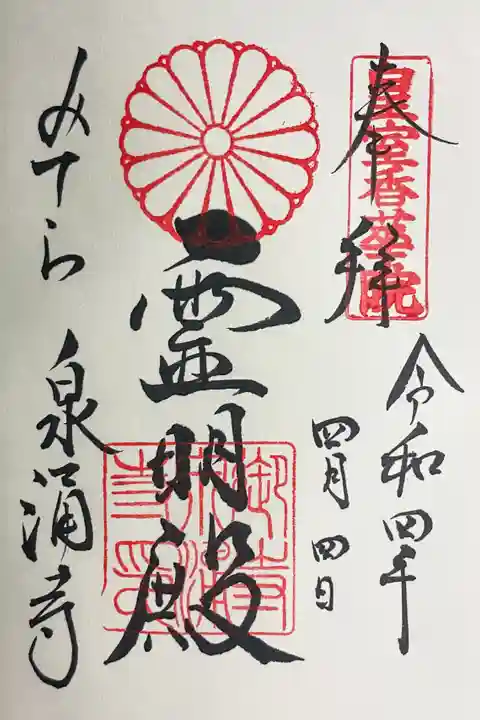 奉拝
皇室香華院
令和四年
四月四日
霊明殿
みてら 泉涌寺